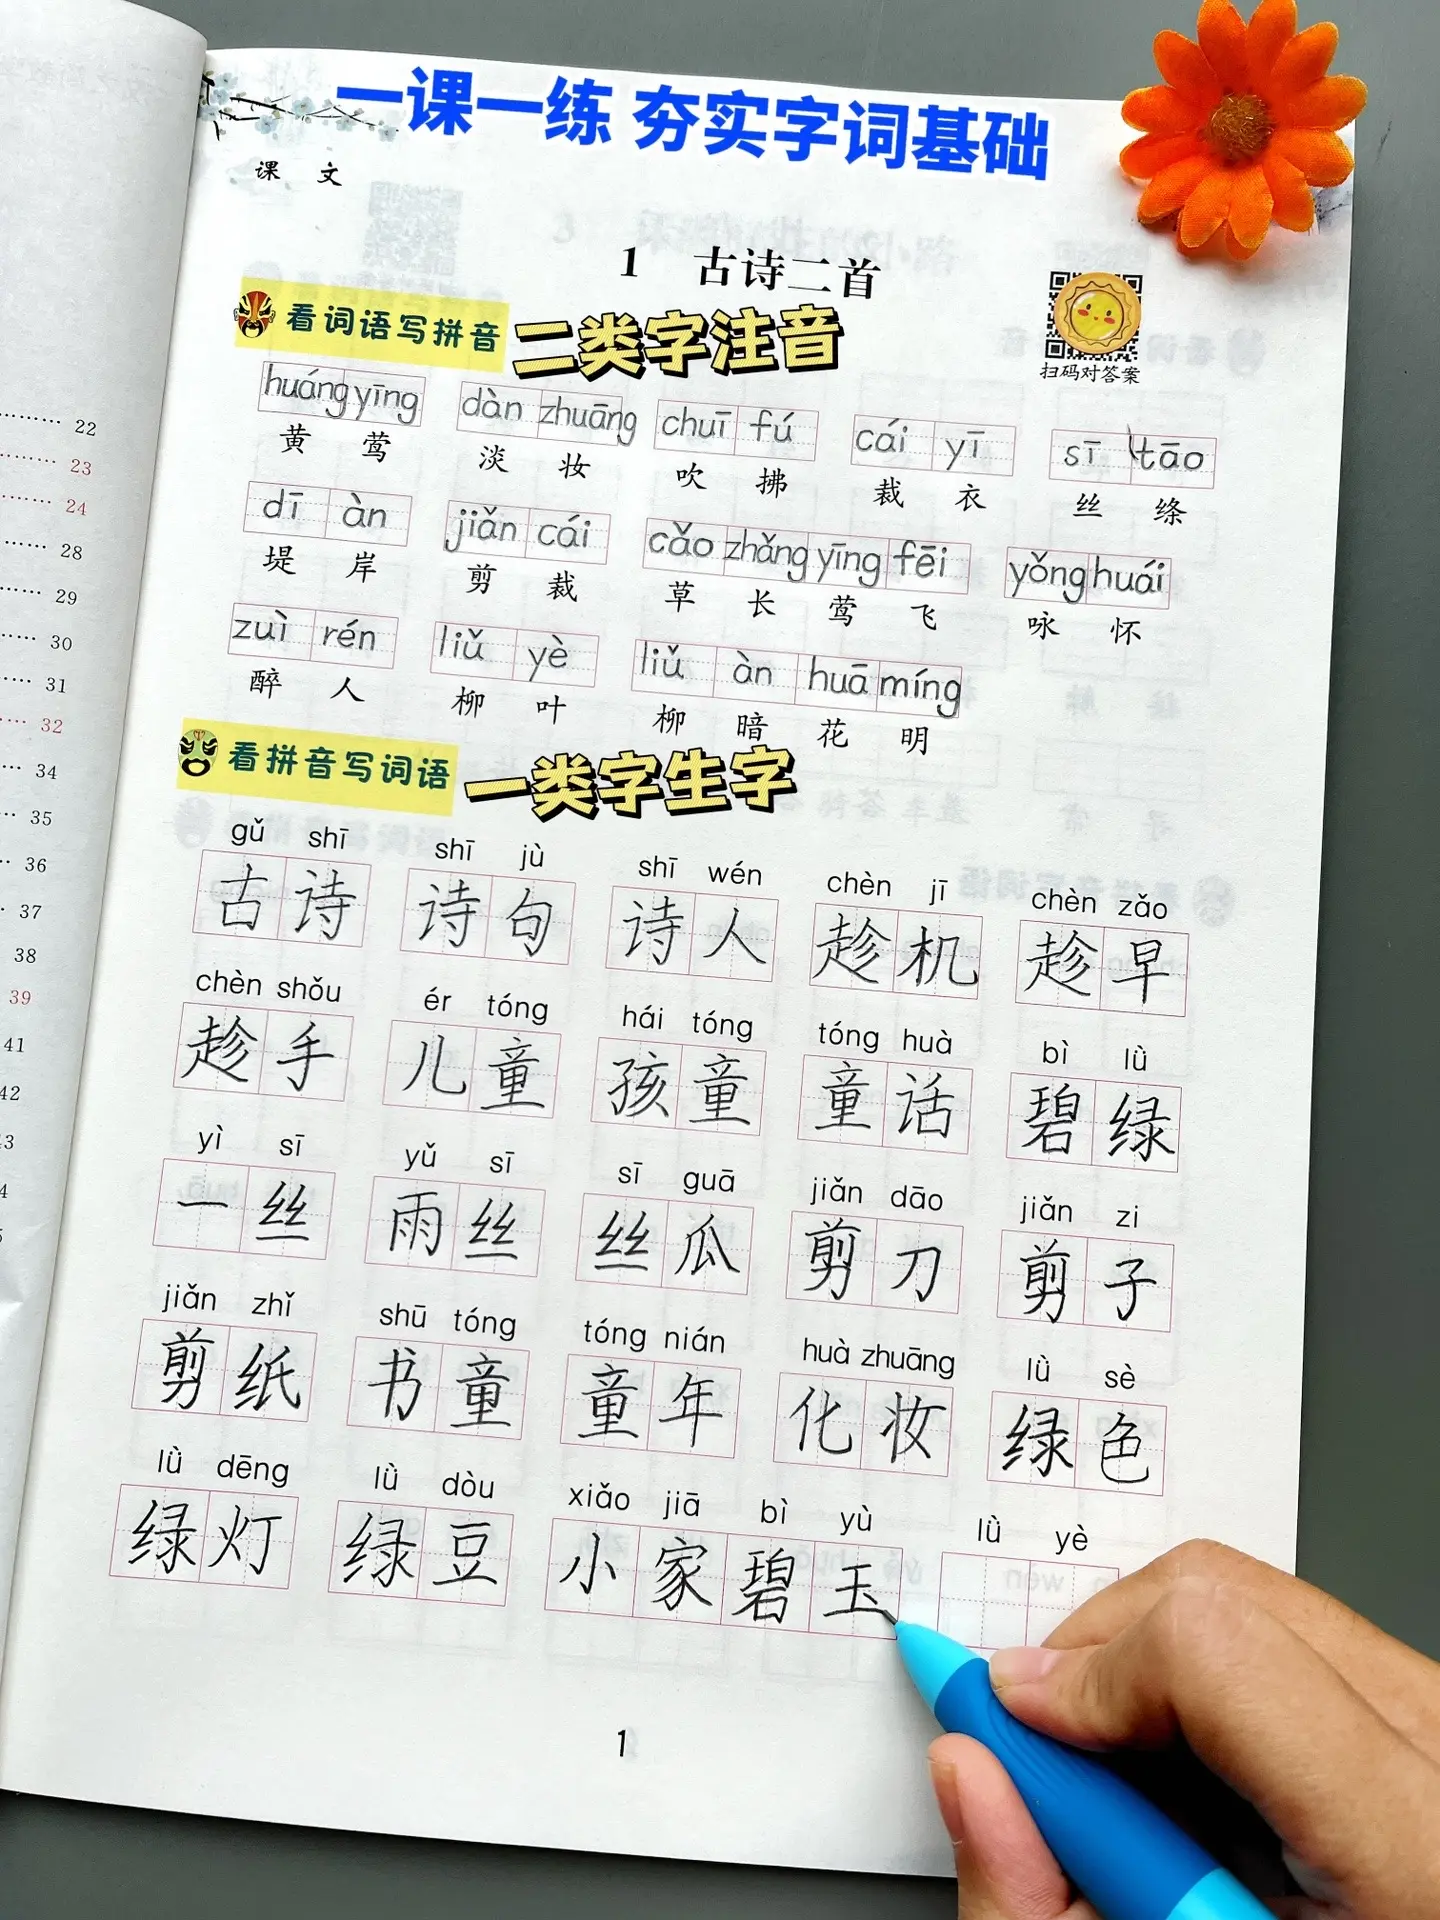 一课一练 夯实字词基础
课 文
1 古诗二首
看词语写拼音 二类字注音
扫码对答案
huáng yīng dàn zhuāng chuī fú cái yī sī tāo
黄 莺 淡 妆 吹 拂 裁 衣 丝 绦
dī àn jiǎn cái cǎo zhǎng yīng fēi yǒng huái
堤 岸 剪 裁 草 长 莺 飞 咏 怀
zuì rén liǔ yè liǔ àn huā míng
醉 人 柳 叶 柳 暗 花 明
看拼音写词语 一类字生字
gǔ shī shī jù shī wén chèn jī chèn zǎo
古 诗 诗 句 诗 人 趁 机 趁 早
chèn shǒu ér tóng hái tóng tóng huà bì lǜ
趁 手 儿 童 孩 童 童 话 碧 绿
yì sī yǔ sī sī guā jiǎn dāo jiǎn zi
一 丝 雨 丝 丝 瓜 剪 刀 剪 子
jiǎn zhǐ shū tóng tóng nián huà zhuāng lǜ sè
剪 纸 书 童 童 年 化 妆 绿 色
lǜ dēng lǜ dòu xiǎo jiā bì yù lǜ yè
绿 灯 绿 豆 小 家 碧 玉
1
22
23
24
28
29
30
31
32
34
35
36
37
38
39
41
42